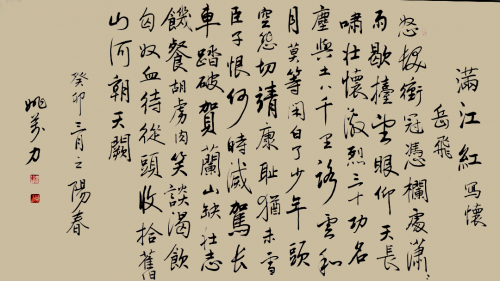 滿江紅 寫懷
岳飛
怒髮衝冠憑欄處瀟〻
雨歇擡望眼仰天長
嘯壯懷激烈三十功名
塵與土八千里路雲和
月莫等閑白了少年頭
空悲切靖康恥猶未雪
臣子恨何時滅駕長
車踏破賀蘭山缺壯志
饑餐胡虜肉笑談渴飲
匈奴血待從頭收拾舊
山河朝天闕
癸卯三月之陽春
姚力